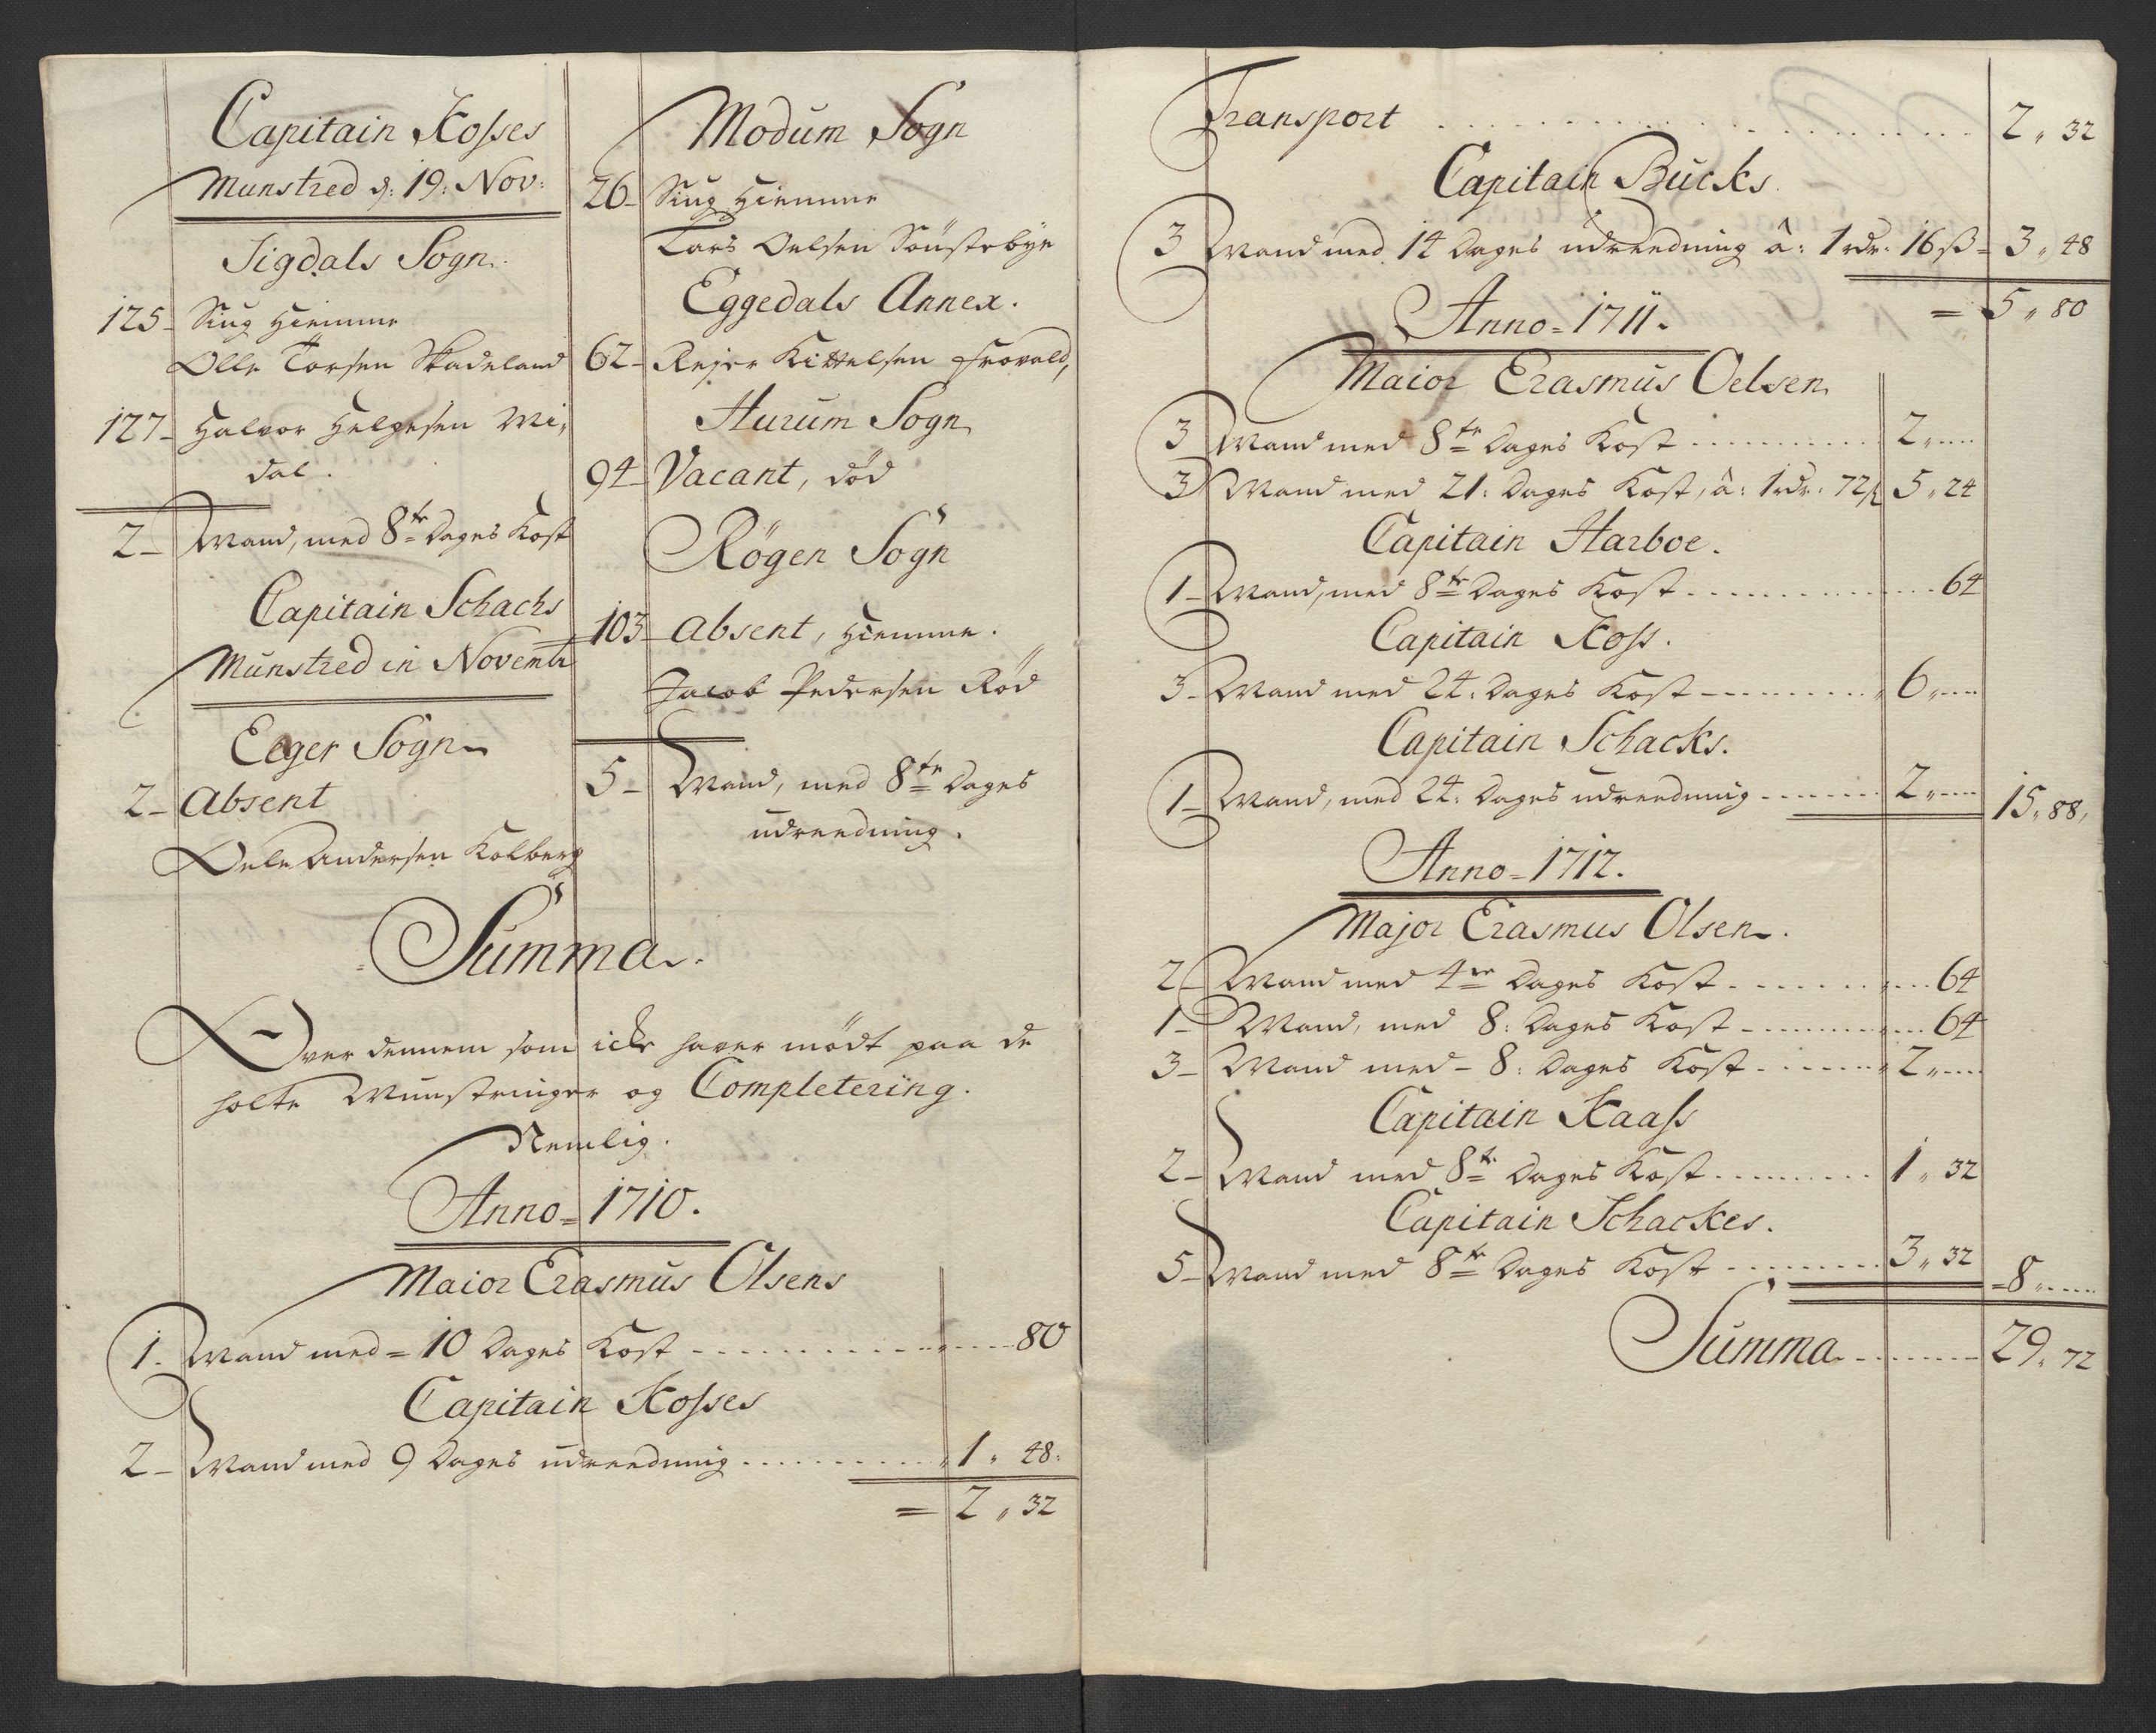 Capitain Kosses
Munstred d: 19: Nov:
Sigdals Sogn.
125- Siug Hiemme
Olle Torsen Skadeland
127- Halvor Helgesen Mi,
dal.
2- Mand, med 8te Dages Kost
Capitain Schachs
Munstred in Novembr
Eeger Sogn
2- Absent
Oele Andersen Kolberg
Modum Sogn
26- Siug Hiemme
Lars Oelsen Söustebye
Eggedals Annex.
62- Rejer Kittelsen Frovold,
Hurum Sogn
94- Vacant, död
Rögen Sogn
103- Absent, Hiemme.
Jacob Pedersen Röd
5- Mand, med 8te Dages
udreedning.
Summa.
Over dennem som icke haver mödt paa de
holte Munstringer og Completering.
Nemlig.
Anno=1710.
Maior Erasmus Olsens
1. Mand med=10 Dages Kost ........ 80
Capitain Kosses
2- Mand med 9 Dages udreedning ........ 1 " 48:
= 2 " 32
Transport ........ 2 " 32
Capitain Bucks.
3 Mand med 14 Dages udreedning â: 1 rdr. 16 ß= 3 " 48
= 5 " 80
Anno=1711.
Maior Erasmus Oelsen
3 Mand med 8te Dages Kost ........ 2 " ....
3 Mand med 21: Dages Kost, â: 1 rdr. 72 ß 5 " 24
Capitain Harboe.
1- Mand, med 8te Dages Kost ........ 64
Capitain Koss.
3- Mand med 24: Dages Kost ........ 6 " ....
Capitain Schacks.
1- Mand, med 24: Dages udreedning ........ 2 " .... 15 " 88,
Anno=1712.
Major Erasmus Olsen.
2- Mand med 4re Dages Kost ........ 64
1- Mand, med 8: Dages Kost ........ 64
3- Mand med- 8: Dages Kost ........ 2 " ....
Capitain Kaass
2- Mand med 8te Dages Kost ........ 1 " 32
Capitain Schackes.
5- Mand med 8te Dages Kost ........ 3 " 32 =8 " ....
Summa ........ 29 " 72